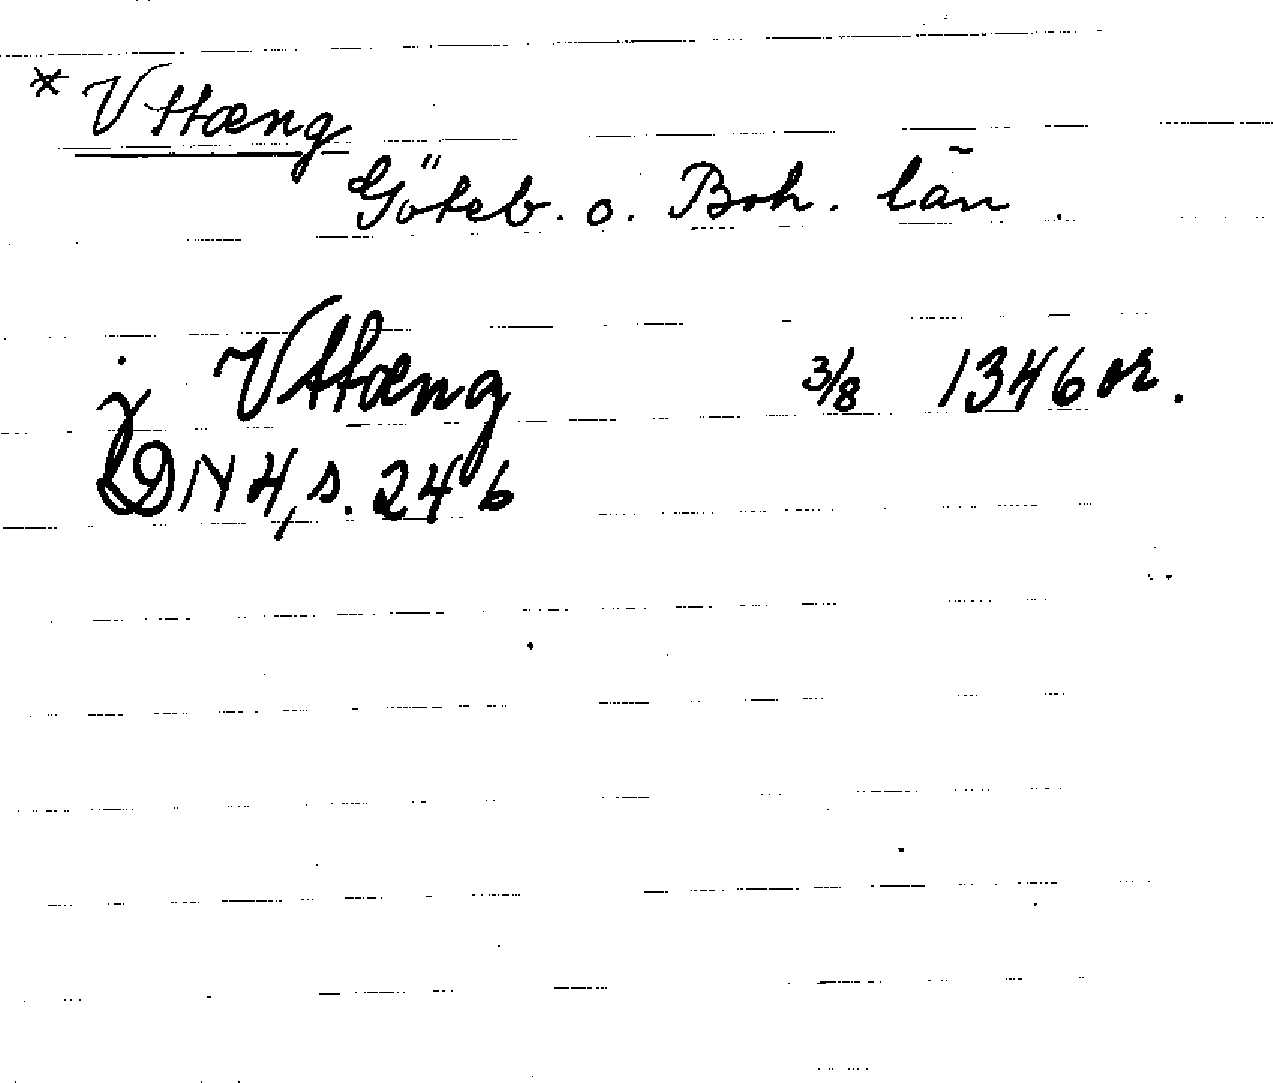 * Vttæng
Göteb. o. Boh. län
j Vttæng 3/8 1346 or.
DN 4, s. 246